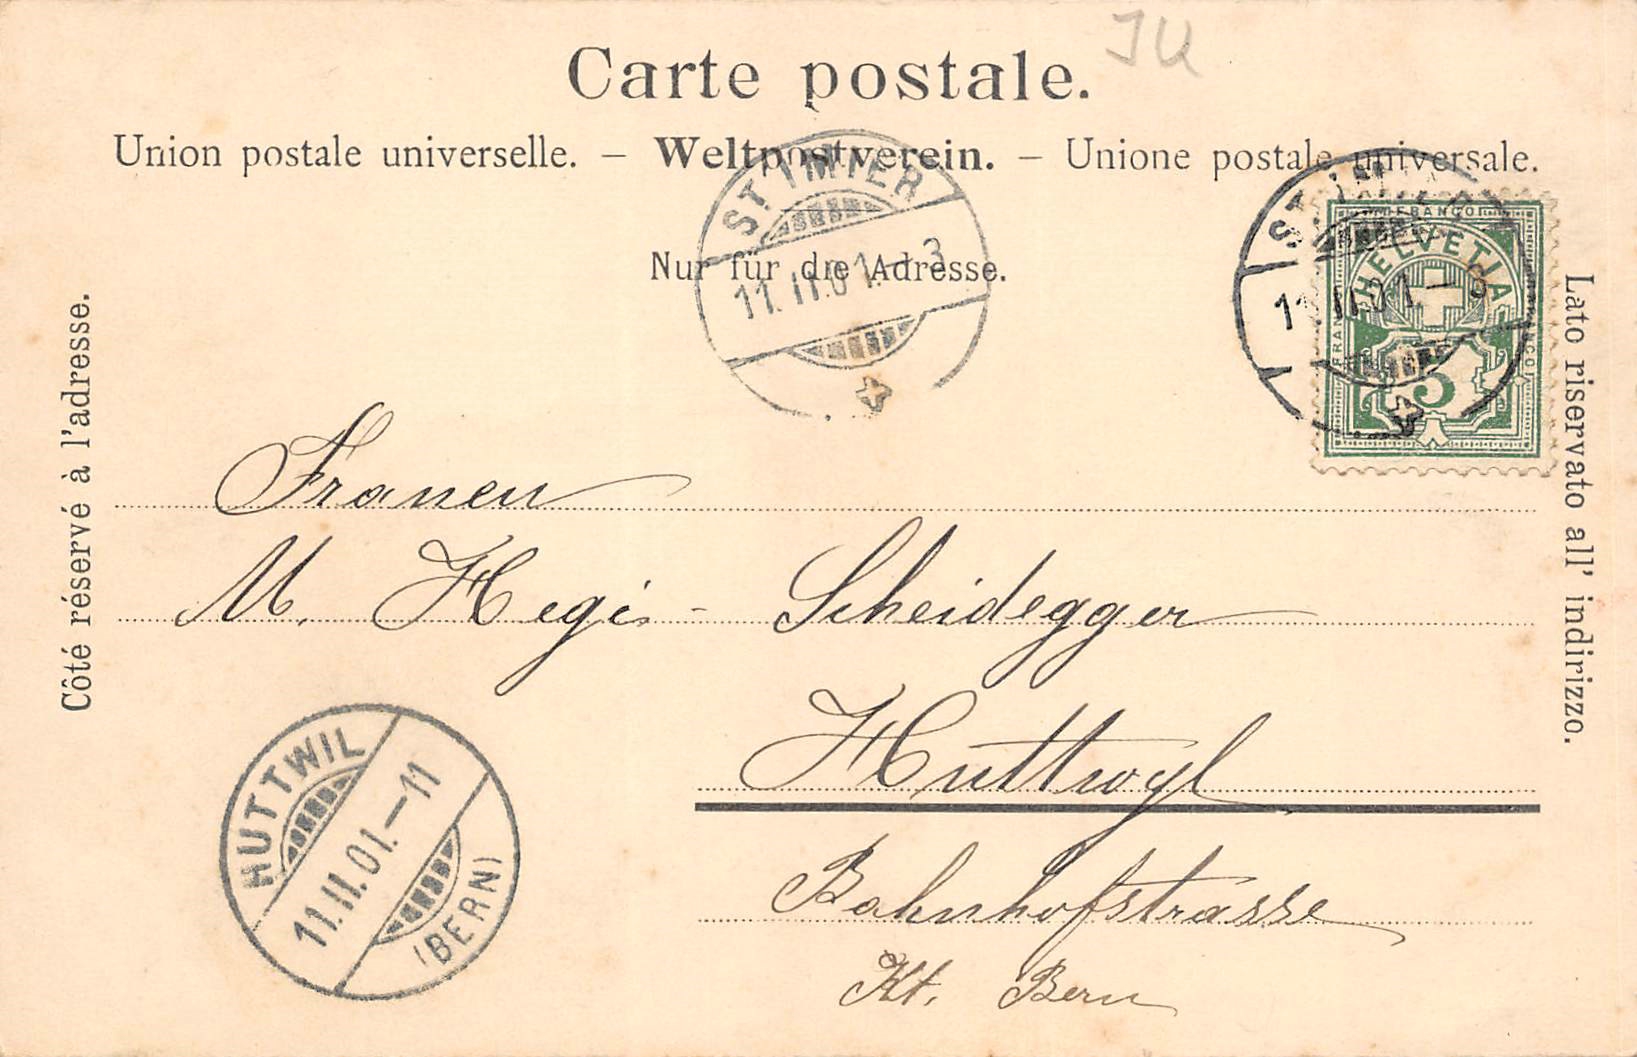 JU
Carte postale.
Union postale universelle. – Weltpostverein. – Unione postale universale.
Nur für die Adresse.
Côté réservé à l'adresse.
Lato riservato all' indirizzo.
ST. IMIER
11. II. 01. – 3
ST. IMIER
11. II. 01. –
FRANCO
HELVETIA
FRANCO
FRANCO
5
Frauen
M. Hegi - Scheidegger
Huttwyl
Bahnhofstrasse
Kt. Bern
HUTTWIL
11. II. 01. – 11
(BERN)